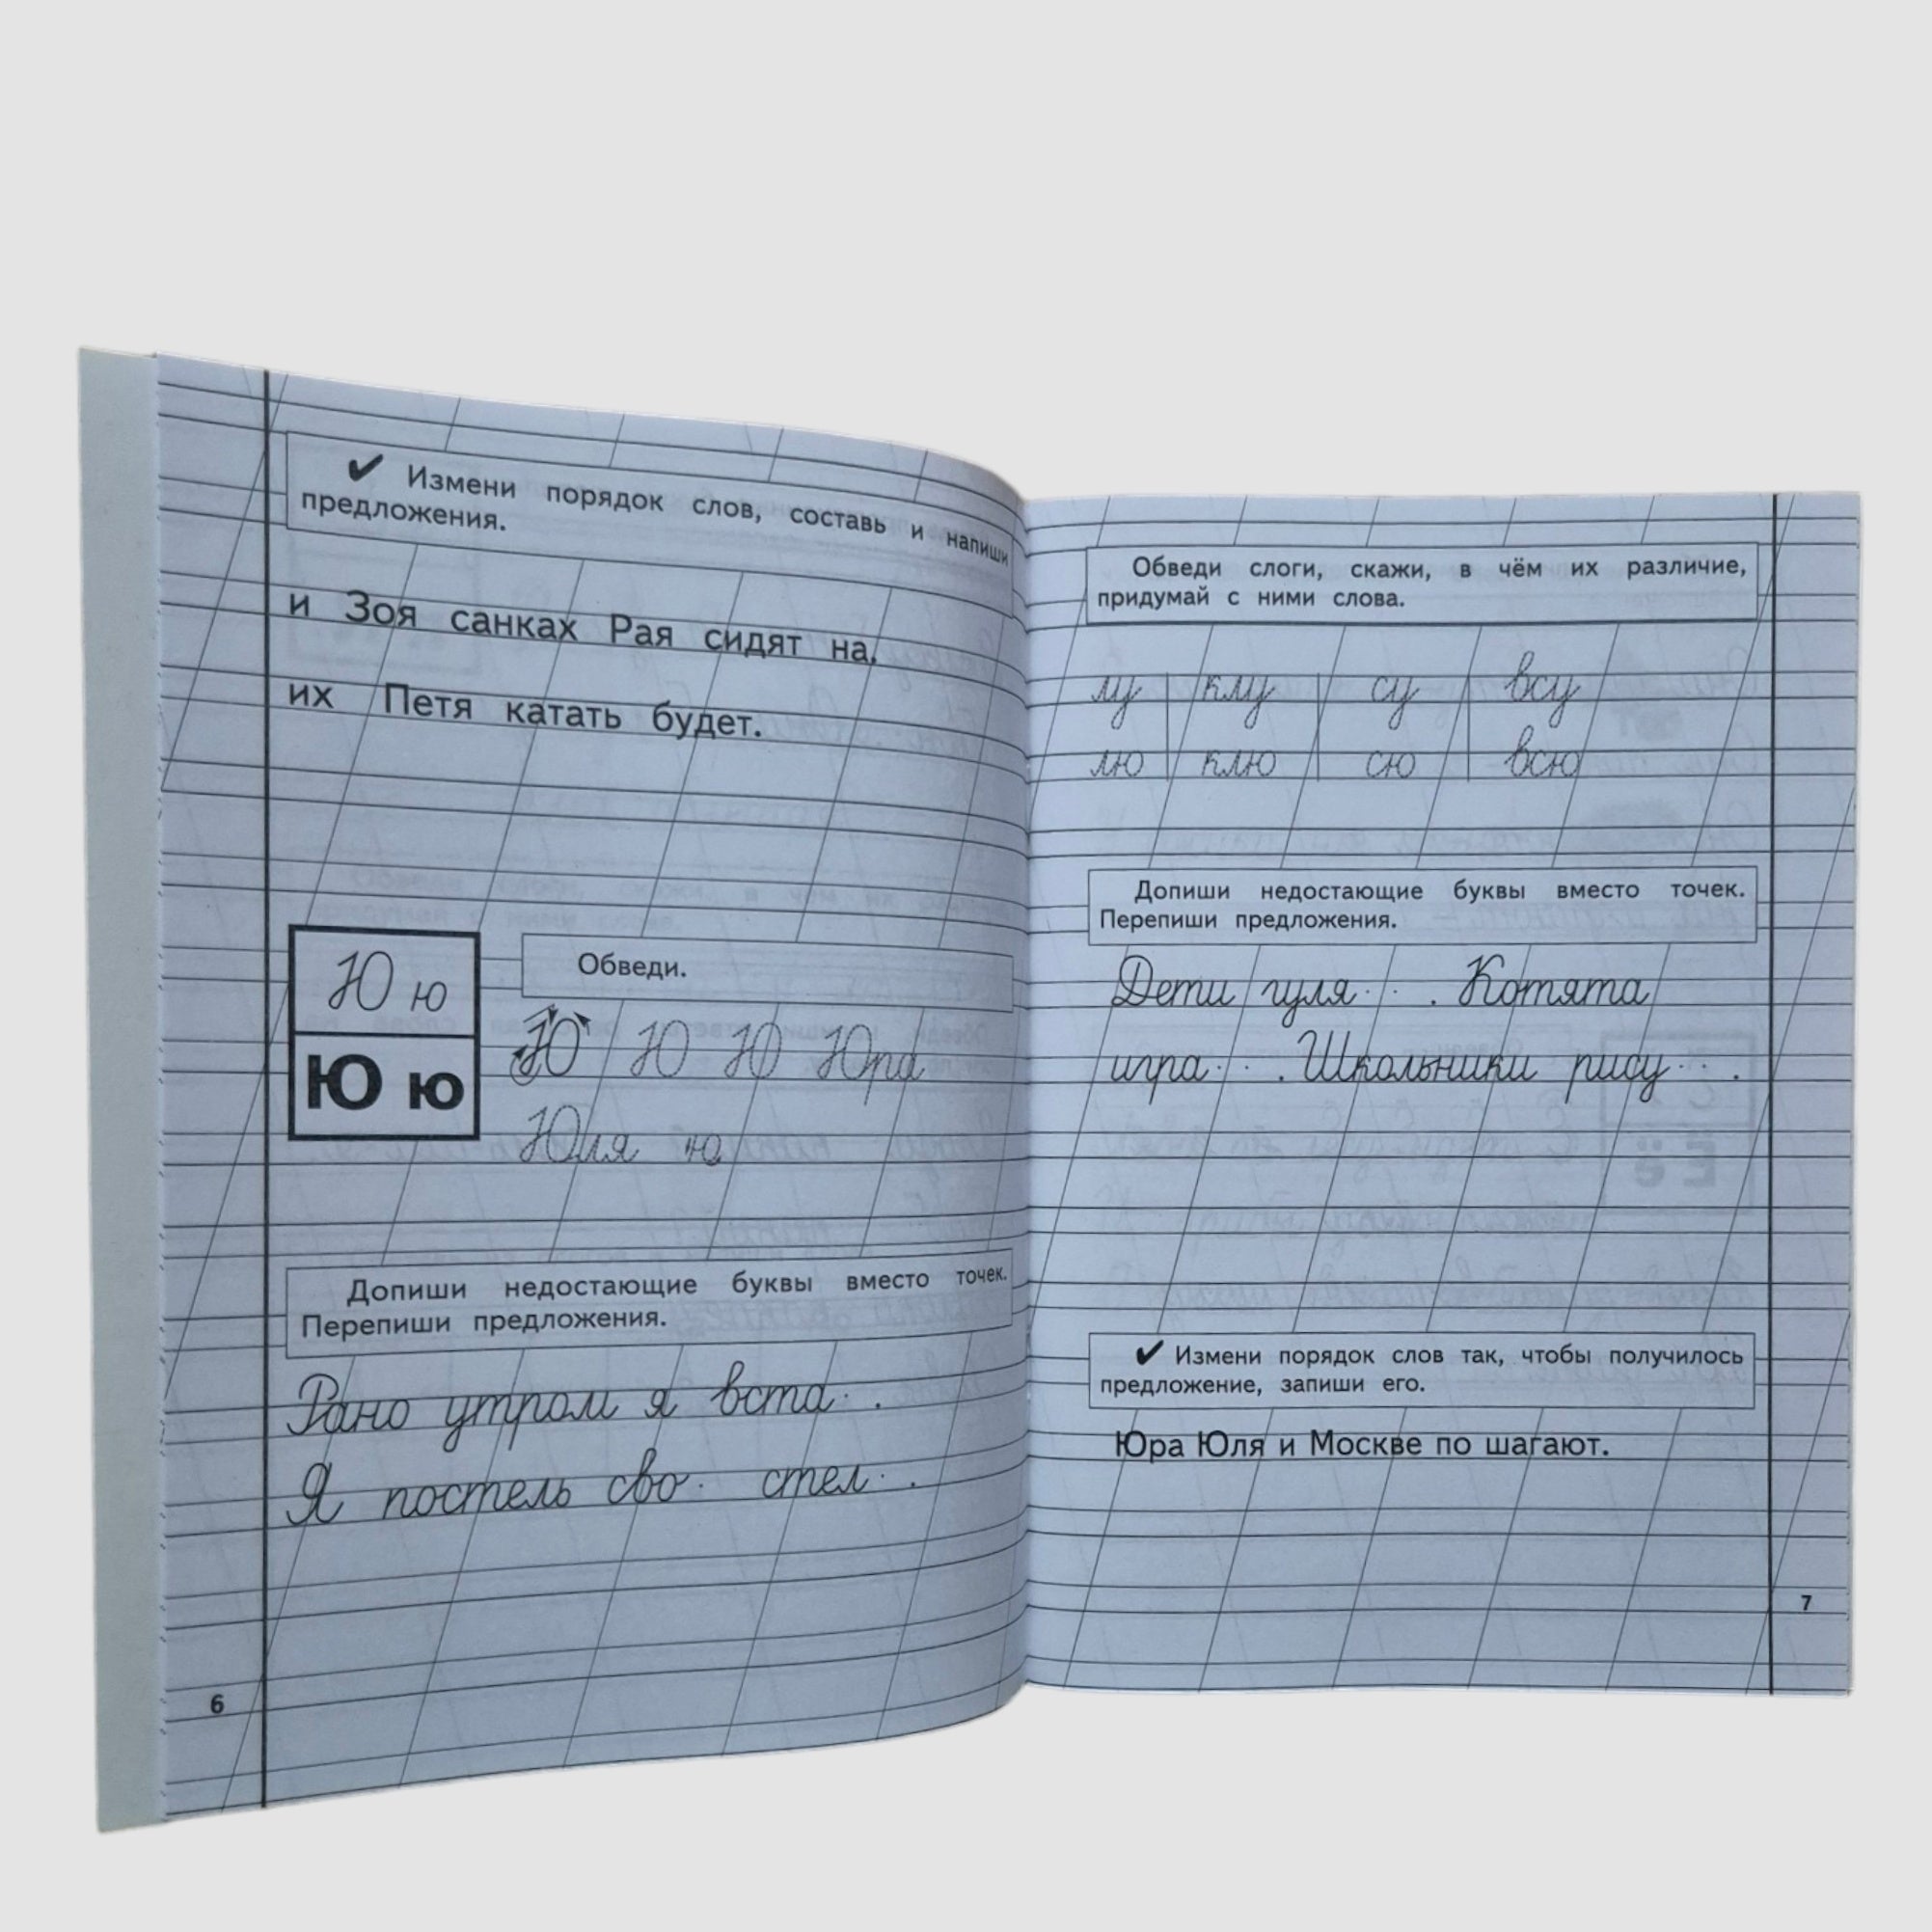 ✔ Измени порядок слов, составь и напиши
предложения.
и Зоя санках Рая сидят на.
их Петя катать будет.
Ю ю
Ю ю
Обведи.
Ю Ю Ю Юра
Юля ю
Допиши недостающие буквы вместо точек.
Перепиши предложения.
Рано утром я вста· .
Я постель сво· стел· .
6
Обведи слоги, скажи, в чём их различие,
придумай с ними слова.
лу клу су всу
лю клю сю всю
Допиши недостающие буквы вместо точек.
Перепиши предложения.
Дети гуля· · . Котята
игра· · . Школьники рису· · .
✔ Измени порядок слов так, чтобы получилось
предложение, запиши его.
Юра Юля и Москве по шагают.
7